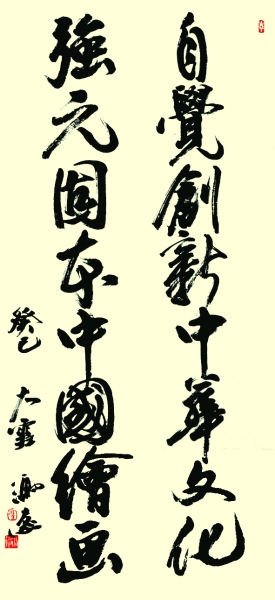 自覺創新中華文化
強元固本中國繪画
癸巳
大雪